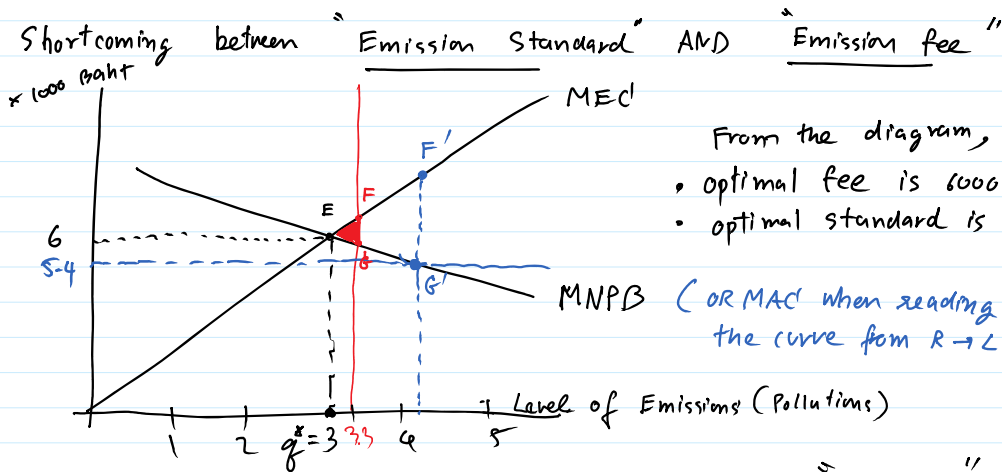 Shortcoming between "Emission Standard" AND "Emission fee"
× 1000 Baht
MEC
From the diagram,
F'
• optimal fee is 6000
F
E
• optimal standard is
6
5.4
G
G'
MNPB (OR MAC when reading
the curve from R → L
Level of Emissions (Pollutions)
1 2 q* = 3 3.3 4 5